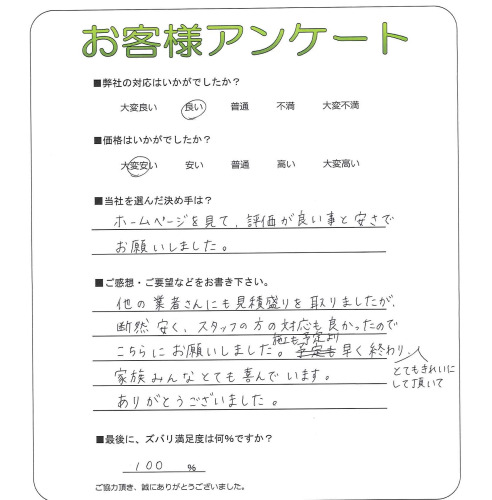 お客様アンケート
■弊社の対応はいかがでしたか?
大変良い 良い 普通 不満 大変不満
■価格はいかがでしたか?
大変安い 安い 普通 高い 大変高い
■当社を選んだ決め手は?
ホームページを見て、評価が良い事と安さで
お願いしました。
■ご感想・ご要望などをお書き下さい。
他の業者さんにも見積盛りを取りましたが、
断然安く、スタッフの方の対応も良かったので
施工も予定より
こちらにお願いしました。予定も早く終わり、
とてもきれいに
して頂いて
家族みんなとても喜んでいます。
ありがとうございました。
■最後に、ズバリ満足度は何%ですか?
100 %
ご協力頂き、誠にありがとうございました。